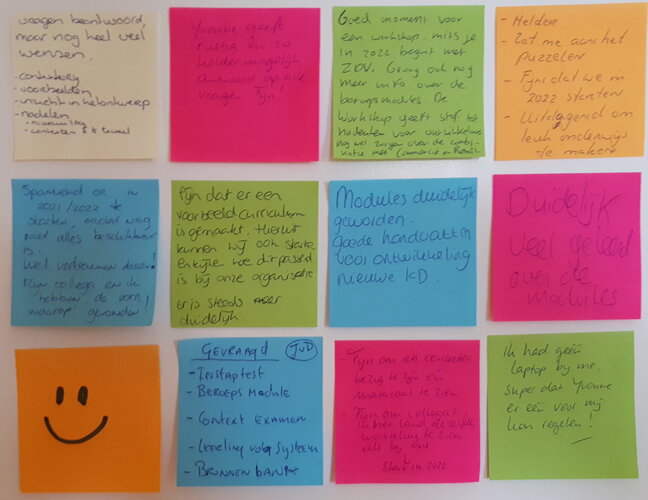 vragen beantwoord,
maar nog heel veel
wensen.
- voorbeelden
- modellen
Yvonne geeft
rustig en zo
helder mogelijk
antwoord op alle
vragen Fijn!
Goed moment voor
een workshop. miss je
in 2022 begint met
ZDV. Graag ook nog
meer info over de
beroepsmodules. De
workshop geeft stof tot
nadenken voor ontwikkelen
nog wel zorgen over de combi-
natie met Commercie en Retail
- Helder
- Zet me aan het
puzzelen
- Fijn dat we in
2022 starten
- Uitdagend om
leuk onderwijs
te maken
Spannend om in
2021/2022 te
starten, omdat nog
niet alles beschikbaar
is.
Wel vertrouwen daarin!
Mijn collega en ik
hebben de vorm,
waarop gevonden!
Fijn dat er een
voorbeeldcurriculum
is gemaakt. Hieruit
kunnen wij ook starten
en kijken hoe dit passend
is bij onze organisatie
er is steeds meer
duidelijk.
Modules duidelijk
geworden.
Goede handvatten
voor ontwikkeling
nieuwe KD.
Duidelijk
veel geleerd
over de
modules
GEVRAAGD JvD
- INSTAPTEST
- BEROEPS MODULE
- CONTEXT EXAMEN
- LEERLING VOLG SYSTEEM
- BRONNEN BANK
- Fijn om iets concreter
bezig te zijn en
materiaal te zien
- Fijn om collega's
in het land dezelfde
worsteling te zien
als bij ons
Start in 2022
Ik had geen
laptop bij me.
Super dat Yvonne
er één voor mij
kon regelen!